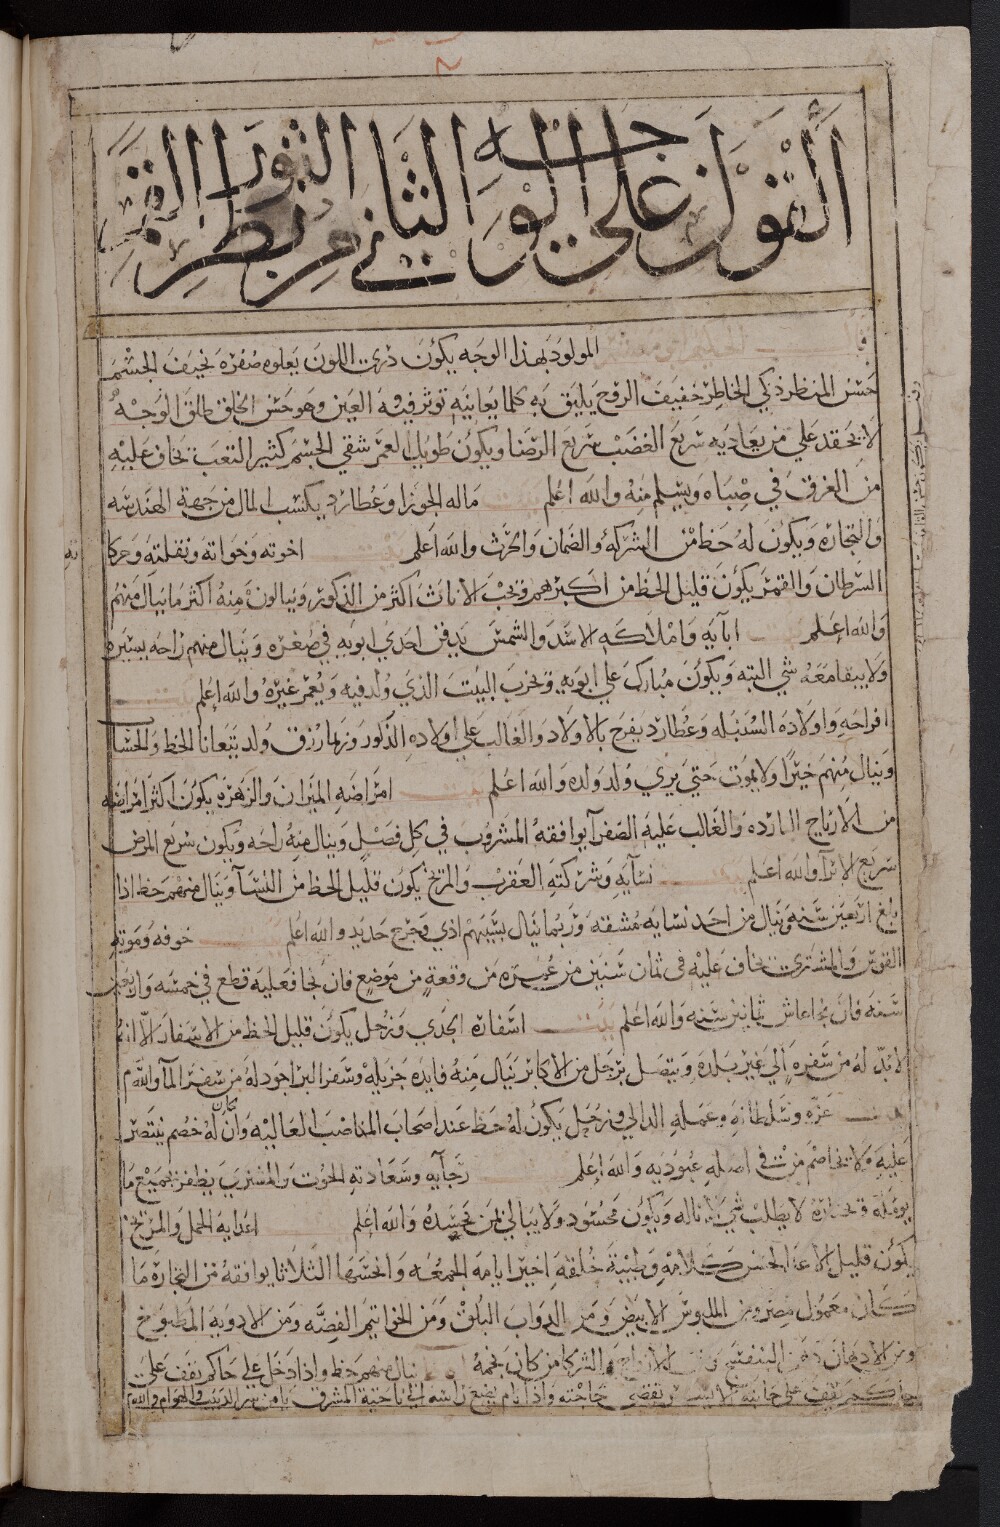 القول على الوجه الثاني من الثور بنظر القمر
قال الحكيم ابو معشر المولود بهذا الوجه يكون دري اللون يعلوه صفره نحيف الجسم
حسن المنظر ذكي الخاطر خفيف الروح يليق به كلما يعانيه توثر فيه العين وهو حسن الخلق طلق الوجه
لا يحقد علي من يعاديه سريع الغضب سريع الرضا ويكون طويل العمر شقي الجسم كثير التعب يخاف عليه
من الغرق في صباه ويسلم منه والله اعلم ماله الجوزا وعطارد يكتسب المال من جهة الهندسه
والتجاره ويكون له حظ من الشركه والضمان والحرث والله اعلم اخوته وخواته ونقلته وحركا
السرطان والقمر يكون قليل الحظ من اكبرهم ويحب الاناث اكثر من الذكور وينالون منه اكثر ما ينال منهم
والله اعلم ابايه واملاكه الاسد والشمس يدفن احدي ابويه في صغره وينال منهم راحه يسيره
ولا يبقا معه شي البته ويكون مبارك علي ابويه ويخرب البيت الذي ولد فيه ويعمر غيره والله اعلم
افراحه واولاده السنبله وعطارد يفرح بالاولاد والغالب علي اولاده الذكور وربما رزق ولد يتعانا الخط والحساب
وينال منهم خيرا ولا يموت حتي يري ولد ولده والله اعلم امراضه الميزان والزهره يكون اكثر امراضه
من الارياح البارده والغالب عليه الصفرا يوافقه المشروب في كل فصل وينال منه راحه ويكون سريع المرض
سريع الابرا والله اعلم نسايه وشركته العقرب والمريخ يكون قليل الحظ من النسا وينال منهم حظ اذا
بلغ اربعين سنه وينال من احد نسايه مشقه وربما ينال بسببهم اذي وجرح حديد والله اعلم خوفه وموته
القوس والمشتري يخاف عليه في ثمان سنين من عمره من وقعة من موضع فان نجا فعليه قطع في خمسه واربعين
سنه فان نجا عاش ثمانين سنه والله اعلم اسفاره الجدي وزحل يكون قليل الحظ من الاسفار الا انه
لا بد له من سفره الي غير بلده ويتصل برجل من الاكابر ينال منه فايده جزيله وسفر البر اجود له من سفر الما والله
عزه وسلطانه وعمله الدالي وزحل يكون له حظ عند اصحاب المناصب العاليه وان كان له خصم ينتصر
عليه ولا يخاصم من في اصله عبوديه والله اعلم رجايه وسعادته الحوت والمشتري يظفر بجميع ما
يومله لا يطلب شي الا ناله ويكون محسود ولا يبالي لمن يحسده والله اعلم اعدايه الحمل والمريخ
يكون قليل الاعدا لحسن كلامه وطيبة خلقه اخير ايامه الجمعه واخسرها الثلاثا يوافقه من التجاره ما
كان معمول ومن الملبوس الابيض ومن الدواب البلق ومن الخواتيم الفضه ومن الادويه المطبوخ
ومن الادهان دهن البنفسج والشركا من كان نجمه ينال منهم حظ واذا دخل علي حاكم يقف علي
حاجته واذا نام يضع راسه الي ناحية المشرق